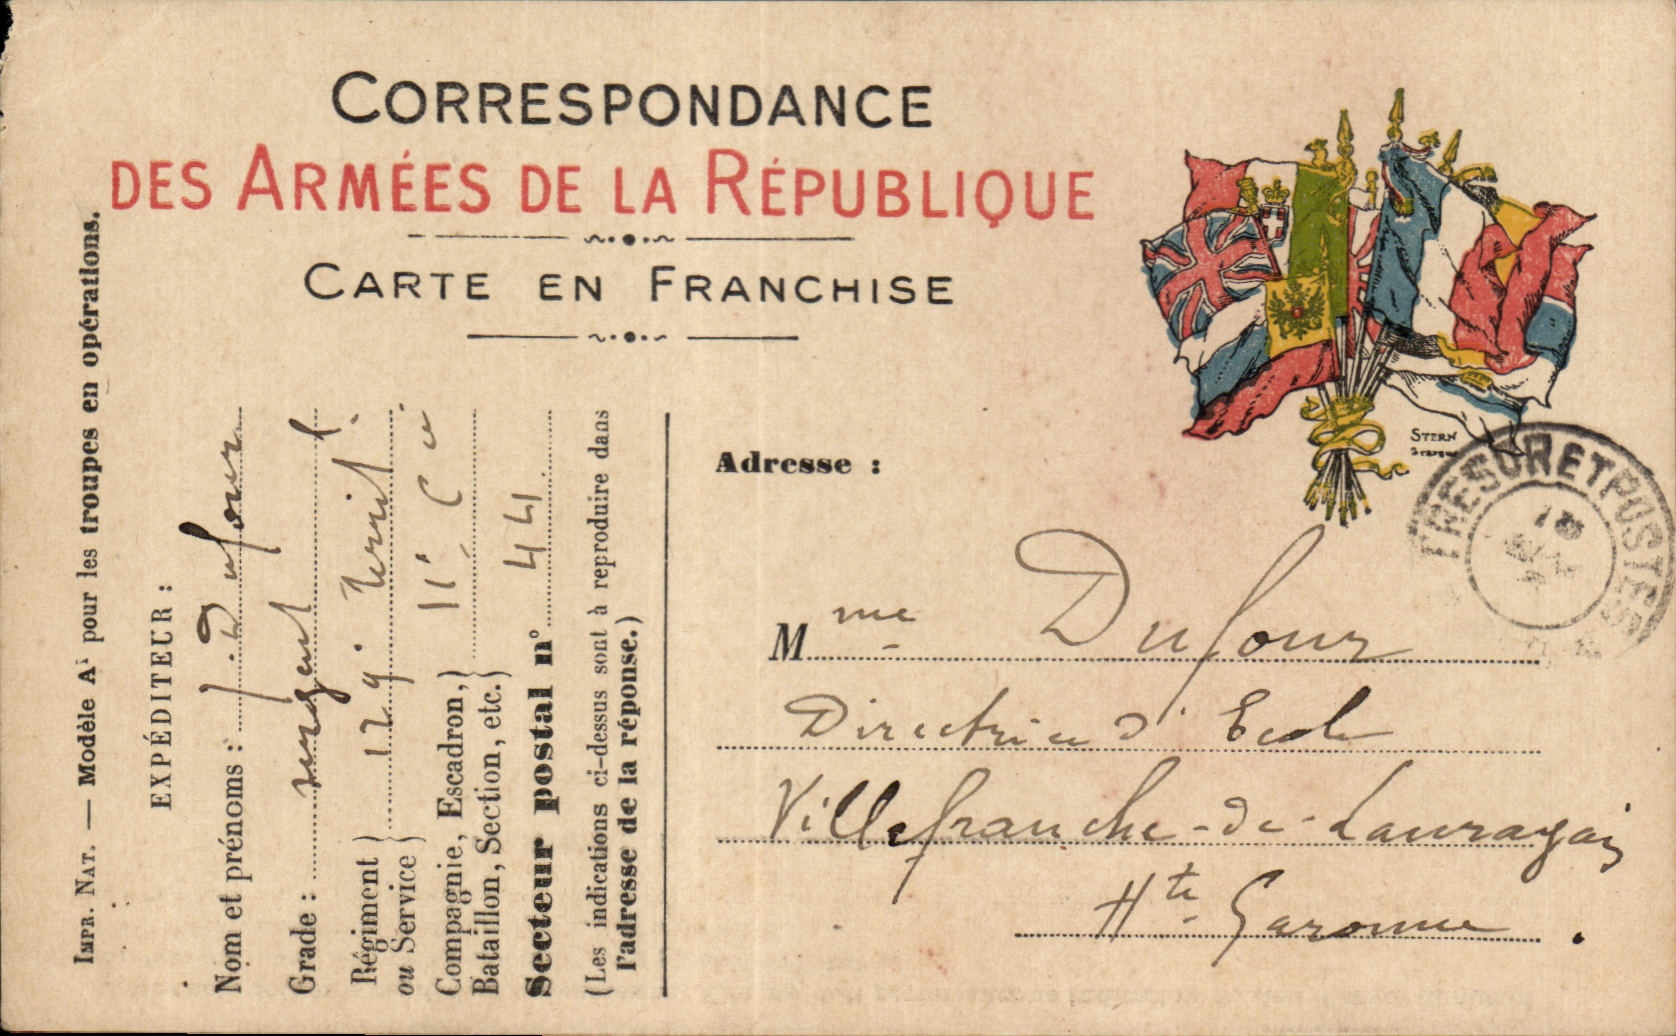 CORRESPONDANCE
DES ARMÉES DE LA RÉPUBLIQUE
CARTE EN FRANCHISE
IMPR. NAT. — Modèle A¹ pour les troupes en opérations.
EXPÉDITEUR :
Nom et prénoms : J. Dufour
Grade : sergent f.
Régiment ou Service } 129e. Territ.
Compagnie, Escadron, Bataillon, Section, etc. } 11e Cie
Secteur postal n° 44
(Les indications ci-dessus sont à reproduire dans
l'adresse de la réponse.)
STERN
Graveur
TRESOR ET POSTES
Adresse :
Mme Dufour
Directrice d'Ecole
Villefranche-de-Lauragais
Hte Garonne.